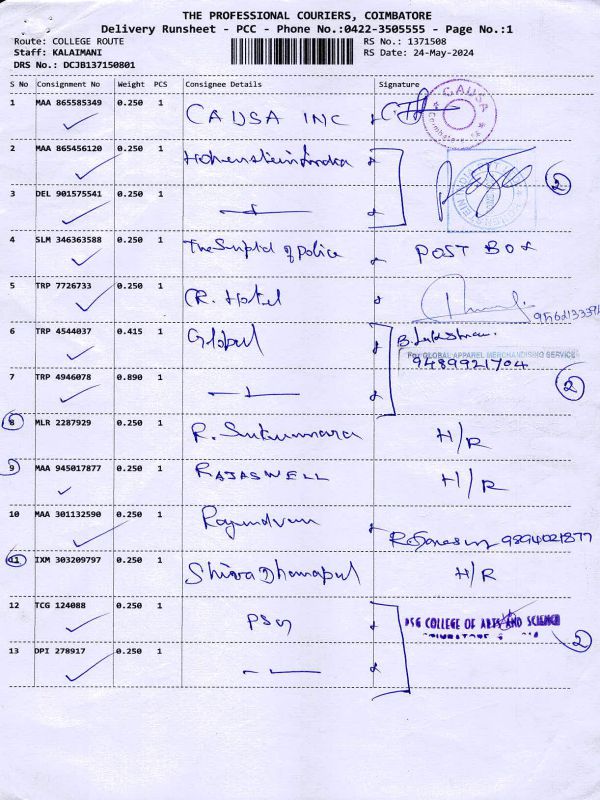 THE PROFESSIONAL COURIERS, COIMBATORE
Delivery Runsheet - PCC - Phone No.:0422-3505555 - Page No.:1
Route: COLLEGE ROUTE RS No.: 1371508
Staff: KALAIMANI RS Date: 24-May-2024
DRS No.: DCJB137150801
S No Consignment No Weight PCS Consignee Details Signature
1 MAA 865585349 0.250 1 CAUSA INC CAUSA
2 MAA 865456120 0.250 1 Hohenstein India
2
3 DEL 901575541 0.250 1
4 SLM 346363588 0.250 1 The Suptd of police POST BOX
5 TRP 7726733 0.250 1 CR. Hotel
6 TRP 4544037 0.415 1 Global B. Lakshman
For GLOBAL APPAREL MERCHANDISING SERVICE
9489921704
7 TRP 4946078 0.890 1 2
8 MLR 2287929 0.250 1 R. Sukumara H/R
9 MAA 945017877 0.250 1 RAJASWELL H/R
10 MAA 301132590 0.250 1 9894021877
11 IXM 303209797 0.250 1 Shiva Dhanapul H/R
12 TCG 124088 0.250 1 PSG PSG COLLEGE OF ARTS AND SCIENCE
2
13 DPI 278917 0.250 1